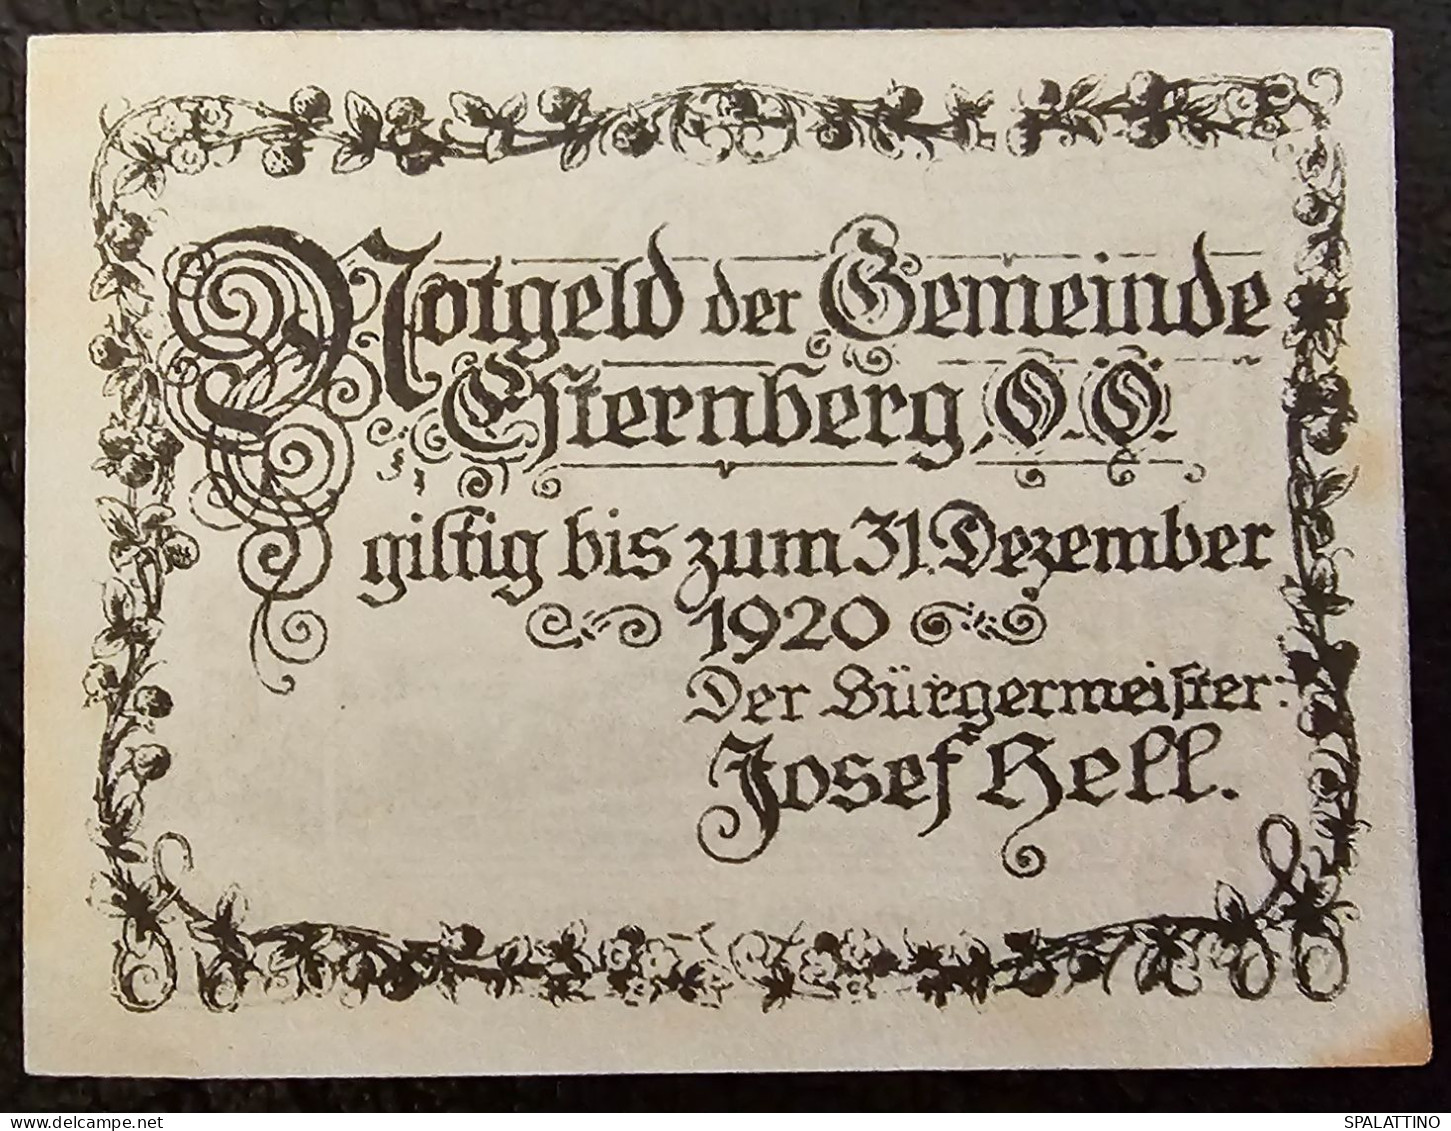 Notgeld der Gemeinde
Esternberg, O.Ö.
giltig bis zum 31. Dezember
1920
Der Bürgermeister:
Josef Hell.
delcampe.net
SPALATTINO